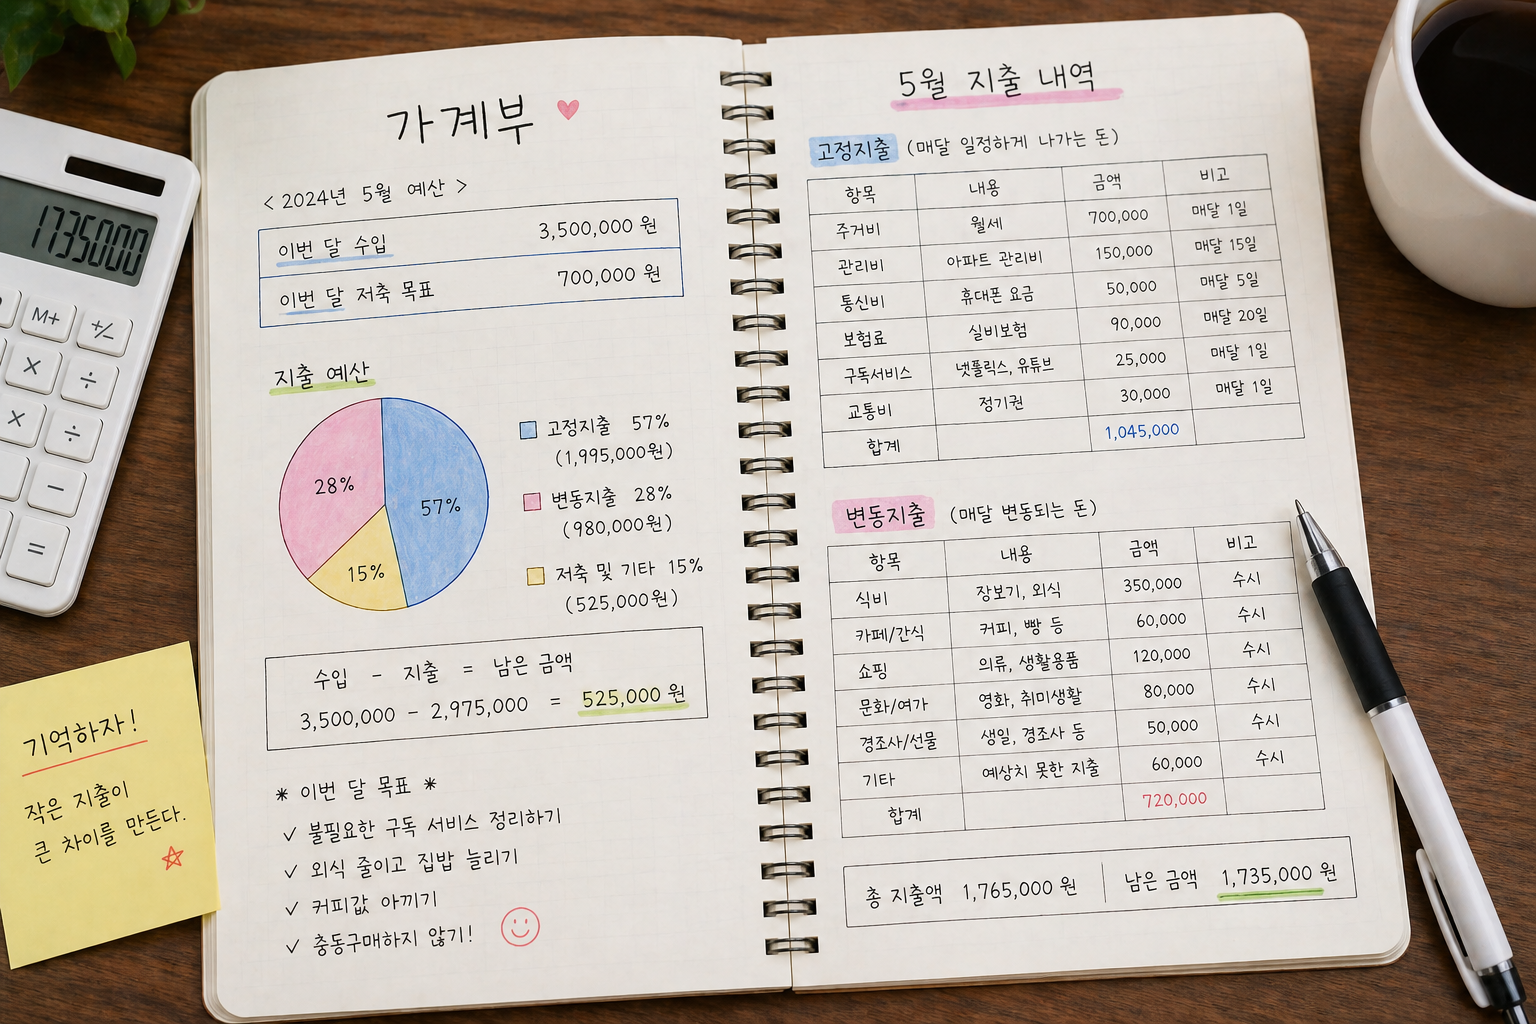 가계부
< 2024년 5월 예산 >
이번 달 수입 3,500,000 원
이번 달 저축 목표 700,000 원
지출 예산
28%
57%
15%
고정지출 57%
(1,995,000원)
변동지출 28%
(980,000원)
저축 및 기타 15%
(525,000원)
수입 - 지출 = 남은 금액
3,500,000 - 2,975,000 = 525,000 원
* 이번 달 목표 *
✓ 불필요한 구독 서비스 정리하기
✓ 외식 줄이고 집밥 늘리기
✓ 커피값 아끼기
✓ 충동구매하지 않기!
5월 지출 내역
고정지출 (매달 일정하게 나가는 돈)
항목 내용 금액 비고
주거비 월세 700,000 매달 1일
관리비 아파트 관리비 150,000 매달 15일
통신비 휴대폰 요금 50,000 매달 5일
보험료 실비보험 90,000 매달 20일
구독서비스 넷플릭스, 유튜브 25,000 매달 1일
교통비 정기권 30,000 매달 1일
합계 1,045,000
변동지출 (매달 변동되는 돈)
항목 내용 금액 비고
식비 장보기, 외식 350,000 수시
카페/간식 커피, 빵 등 60,000 수시
쇼핑 의류, 생활용품 120,000 수시
문화/여가 영화, 취미생활 80,000 수시
경조사/선물 생일, 경조사 등 50,000 수시
기타 예상치 못한 지출 60,000 수시
합계 720,000
총 지출액 1,765,000 원 남은 금액 1,735,000 원
1735000
M+ +/-
× ÷
× ÷
-
=
기억하자!
작은 지출이
큰 차이를 만든다.